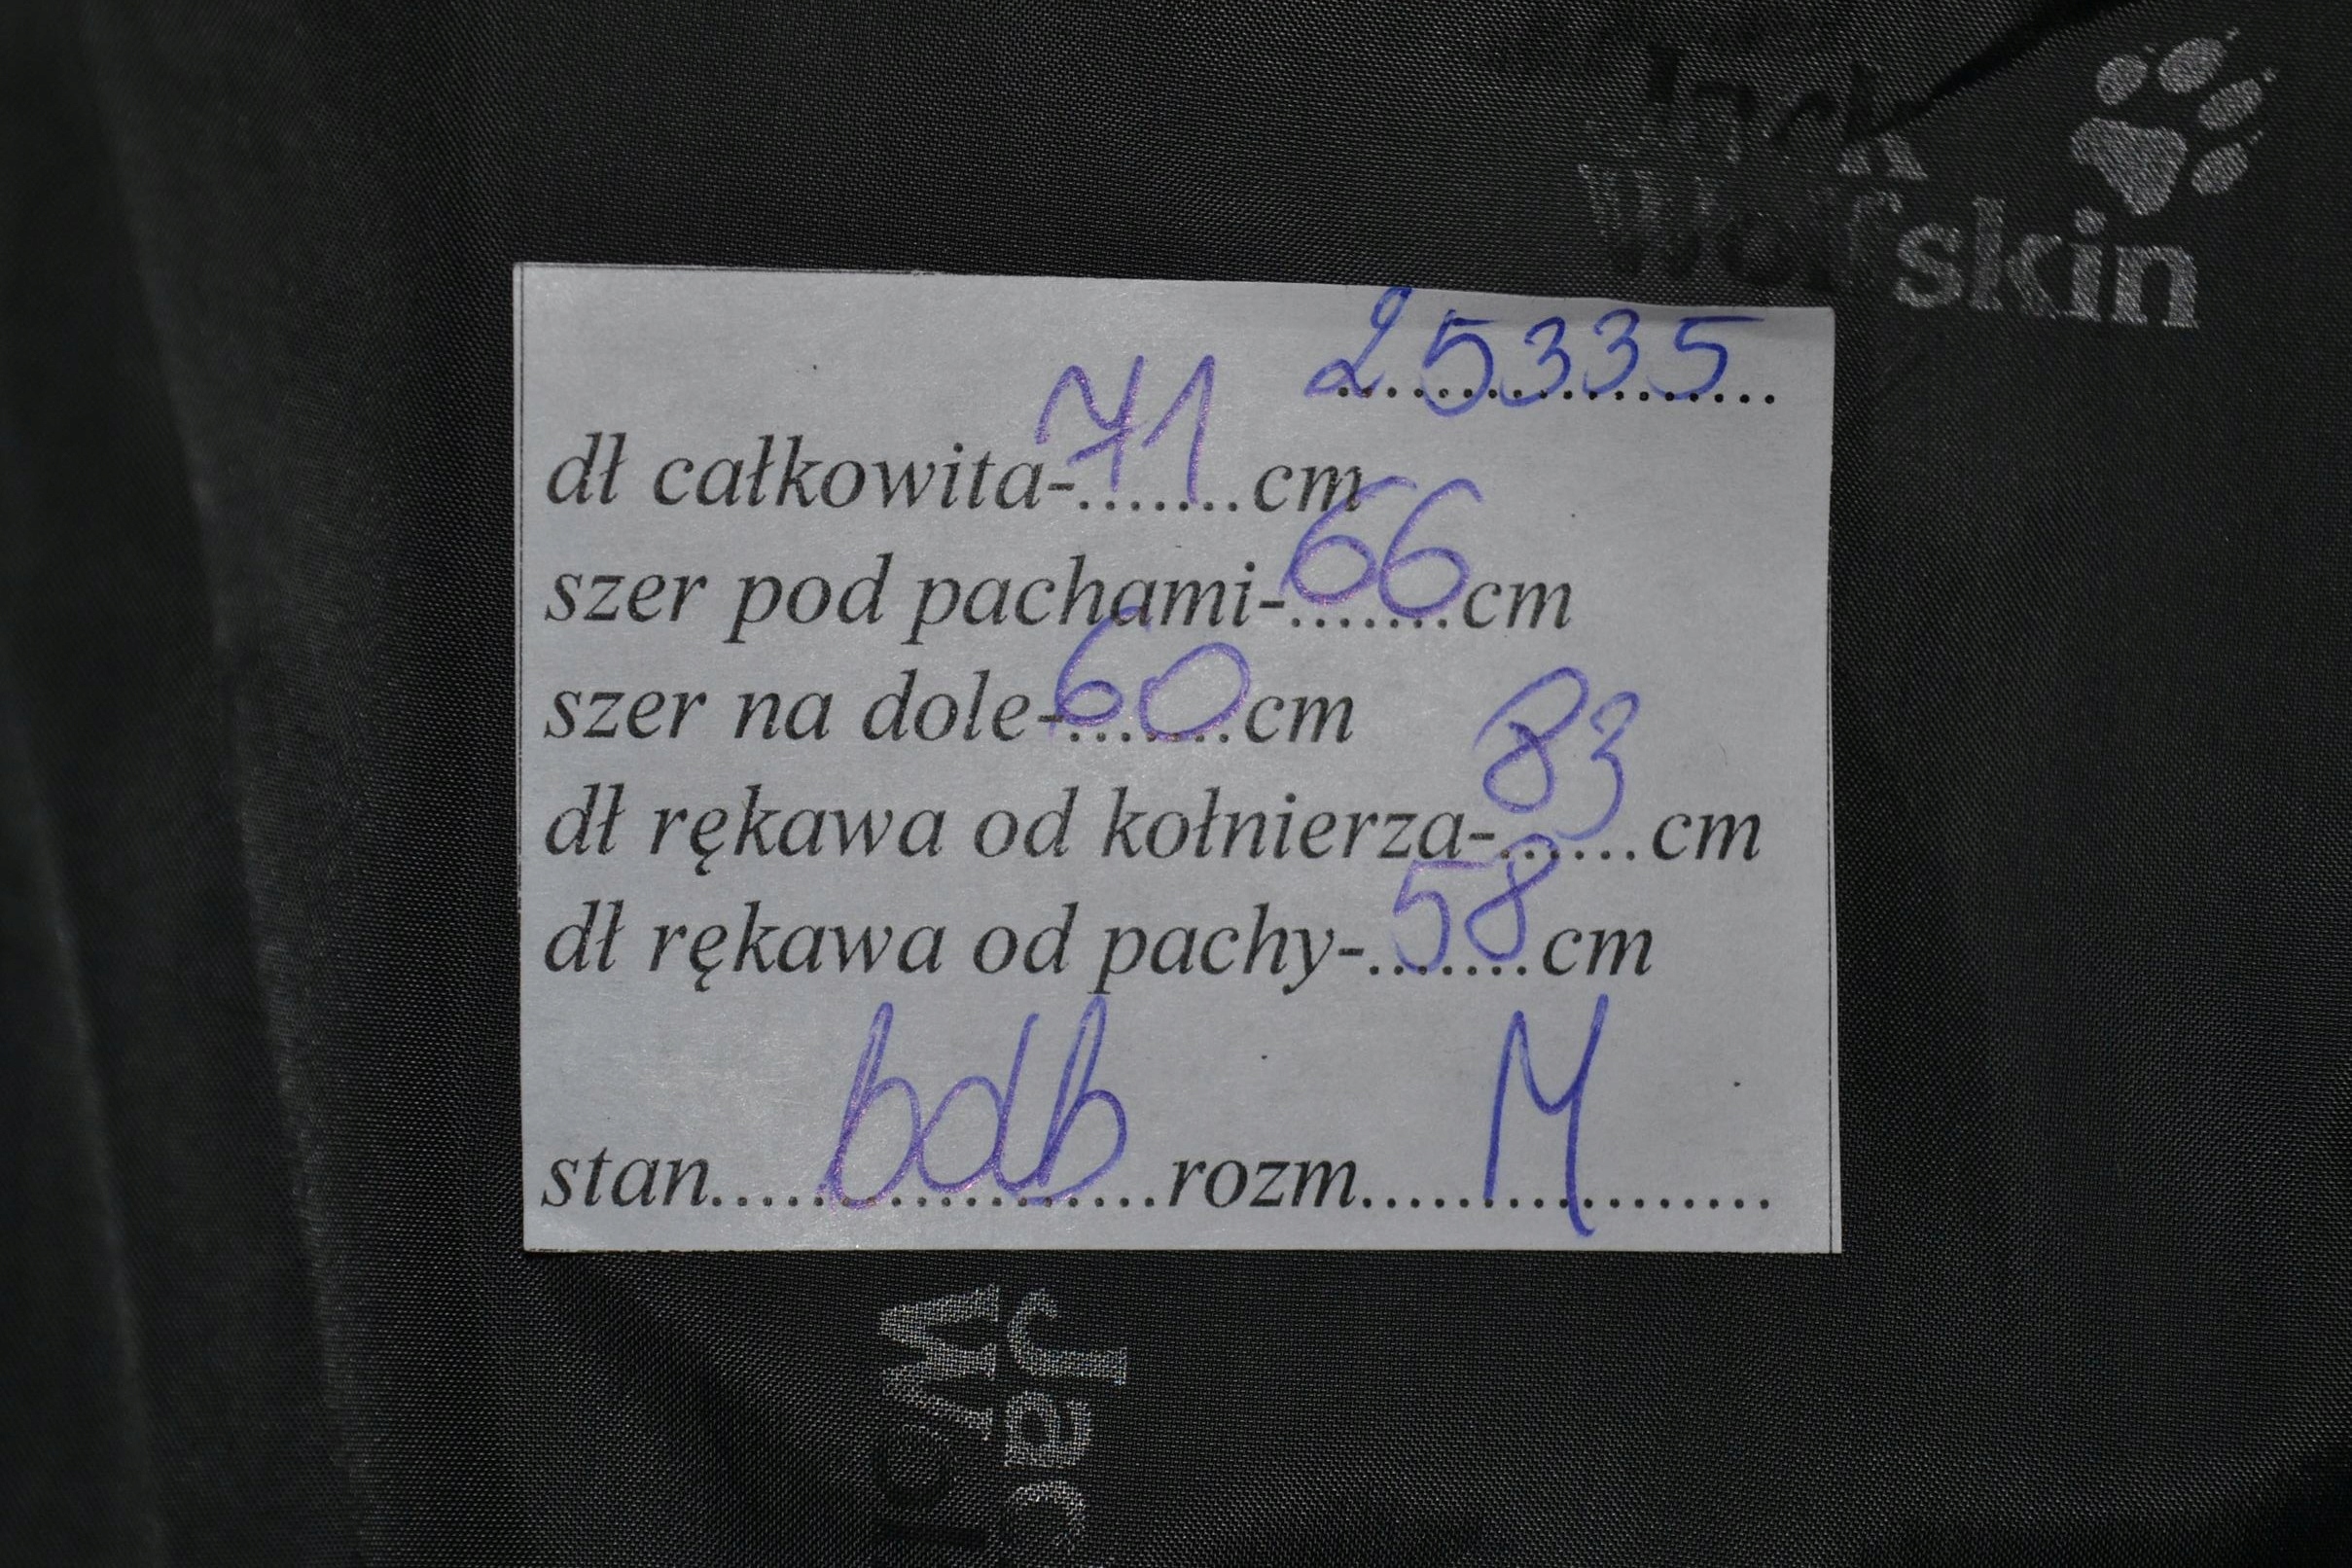 Jack
Wolfskin
25335
dł całkowita-71cm
szer pod pachami-66cm
szer na dole-60cm
dł rękawa od kołnierza-83cm
dł rękawa od pachy-58cm
stan bdb rozm M
Jac
Wo